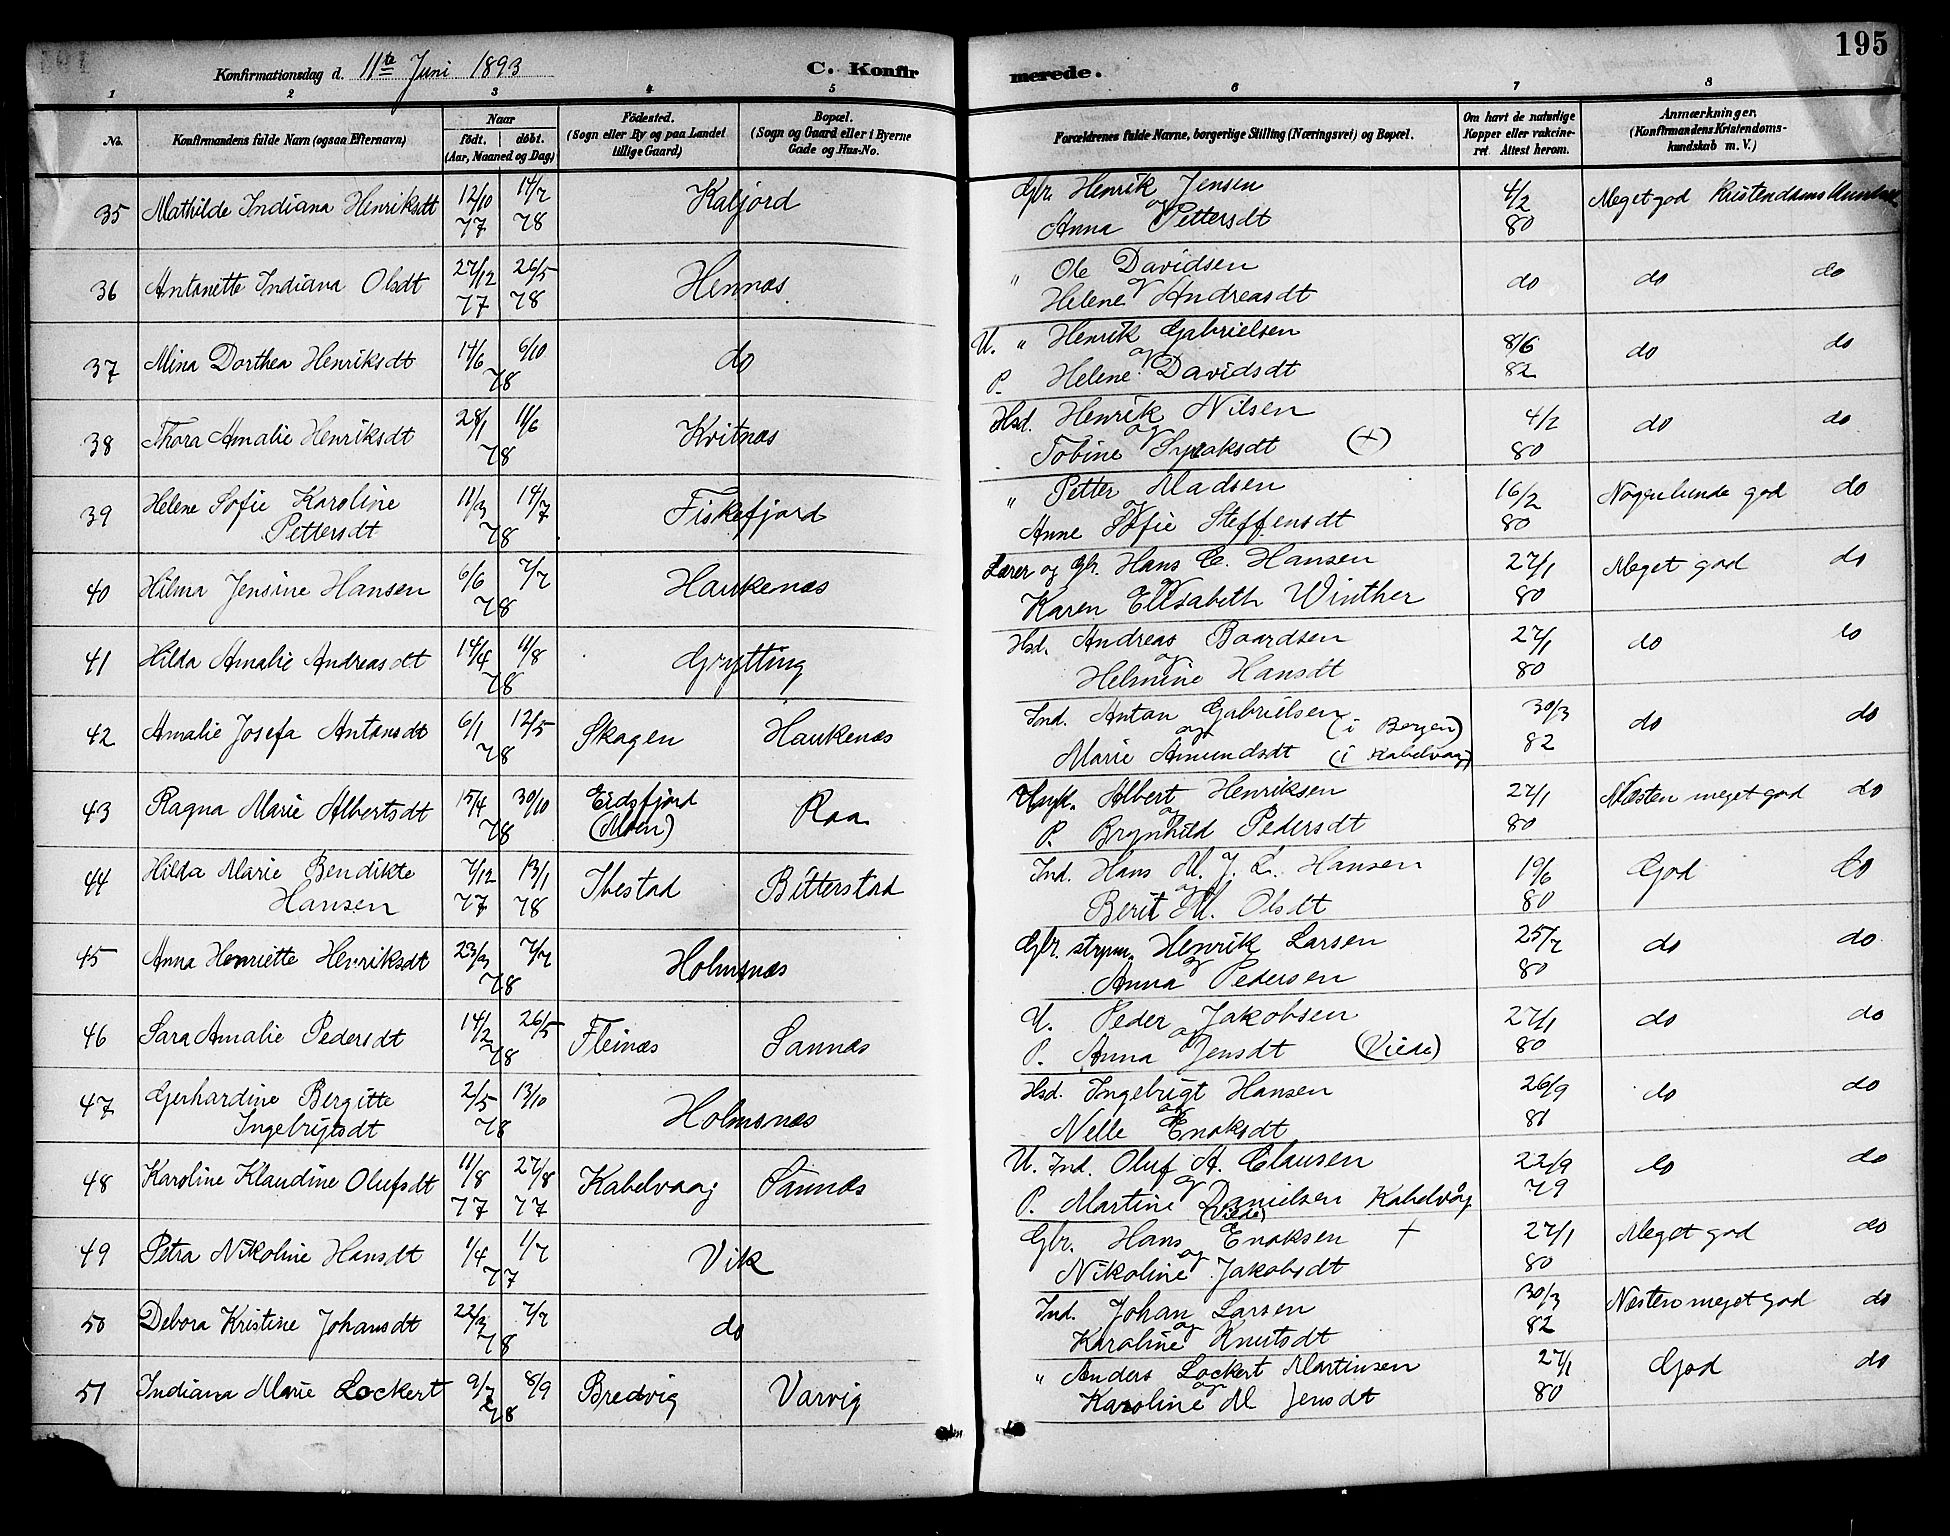 195
Konfirmationsdag d. 11te Juni 1893 C. Konfirmerede.
1 2 3 4 5 6 7 8
No. Konfirmandens fulde Navn (ogsaa Efternavn) Naar født. døbt. (Aar, Maaned og Dag) Fødested. (Sogn eller By og paa Landet tillige Gaard) Bopæl. (Sogn og Gaard eller i Byerne Gade og Hus-No. Forældrenes fulde Navne, borgerlige Stilling (Næringsvei) og Bopæl. Om havt de naturlige Kopper eller vakcineret. Attest herom. Anmærkninger. (Konfirmandens Kristendomskundskab m. V.)
35 Mathilde Indiana Henriksdt 12/10 77 14/7 78 Kaljord Gbr. Henrik Jensen og Anna Pettersdt 4/2 80 Meget god Kristendoms
36 Antonette Indiana Olsdt 27/12 77 26/5 78 Hennæs " Ole Davidsen og Helene Andreasdt do do do
37 Mina Dorthea Henriksdt 14/6 6/10 78 do U. " Henrik Gabrielsen og P. Helene Davidsdt 8/6 82 do do
38 Thora Amalie Henriksdt 28/1 11/6 78 Kvitnæs Hsd. Henrik Nilsen og Tobine (+) 4/2 80 do do
39 Helene Sofie Karoline Pettersdt 11/3 14/7 78 Fiskefjord " Petter Madsen og Anne Sofie Steffensdt 16/2 80 Nogenlunde god do
40 Hilma Jensine Hansen 6/6 7/7 78 Haukenæs Lærer og Gbr. Hans C. Hansen og Karen Elisabeth Winther 27/1 80 Meget god do
41 Hilda Amalie Andreasdt 14/4 11/8 78 Grytting Hsd. Andreas Baardsen og Helmine Hansdt 27/1 80 do do
42 Amalie Josefa Antonsdt 6/1 12/5 78 Skagen Haukenæs Ind. Anton Gabrielsen (i Bergen) og Marie Amundsdt (i Kabelvaag) 30/3 82 do do
43 Ragna Marie Albertsdt 15/4 30/10 78 Eidsfjord (Moen) Raa Albert Henriksen og P. Brynhild Pedersdt 27/1 80 Næsten meget god do
44 Hilda Marie Bendikte Hansen 7/12 77 13/1 78 Ibestad Bitterstad Ind. Hans M. J. L. Hansen og Berit M. Olsdt 19/6 80 God do
45 Anna Henriette Henriksdt 23/3 7/7 78 Holmsnæs Gbr. strpm. Henrik Larsen og Anna Pedersen 25/2 80 do do
46 Sara Amalie Pedersdt 14/2 26/5 78 Fleinæs Sannæs U. Peder Jakobsen og P. Anna Jensdt (Viede) 27/1 80 do do
47 Gerhardine Bergitte Ingebrigtsdt 2/5 13/10 78 Holmsnæs Hsd. Ingebrigt Hansen og Nelle Enoksdt 26/9 81 do do
48 Karoline Klaudine Olufsdt 11/8 77 27/8 77 Kabelvaag Sannæs U. Ind. Oluf A. Clausen og P. Martine Danielsen Kabelvåg (Viede) 22/9 79 do do
49 Petra Nikoline Hansdt 1/4 1/7 77 Vik Gbr. Hans Enoksen + og Nikoline Jakobsdt 27/1 80 Meget god do
50 Debora Kristine Johansdt 22/3 7/7 78 do Ind. Johan Larsen og Karoline Knutsdt 30/3 82 Næsten meget god do
51 Indiana Marie Lockert 9/7 8/9 78 Bredvig Varvig " Anders Lockert Martinsen og Karoline M Jensdt 27/1 80 God do